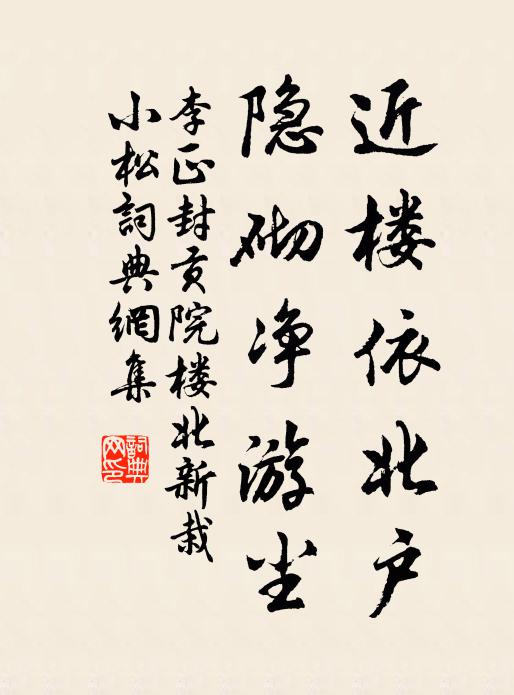 近楼依北户
隐砌净游尘
李正封贡院楼北新栽
小松詞典網集
詞典
网印